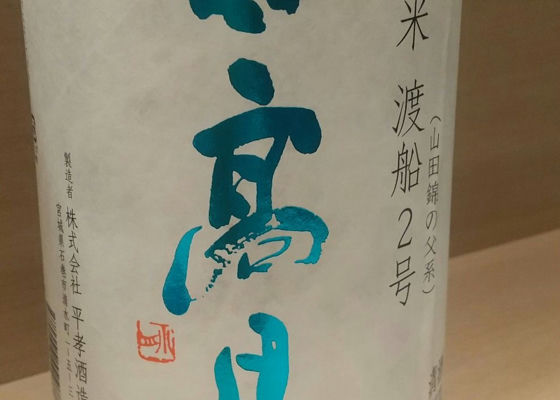 米 渡船2号
(山田錦の父系)
高
製造者 株式会社 平孝酒造
宮城県石巻市清水町一